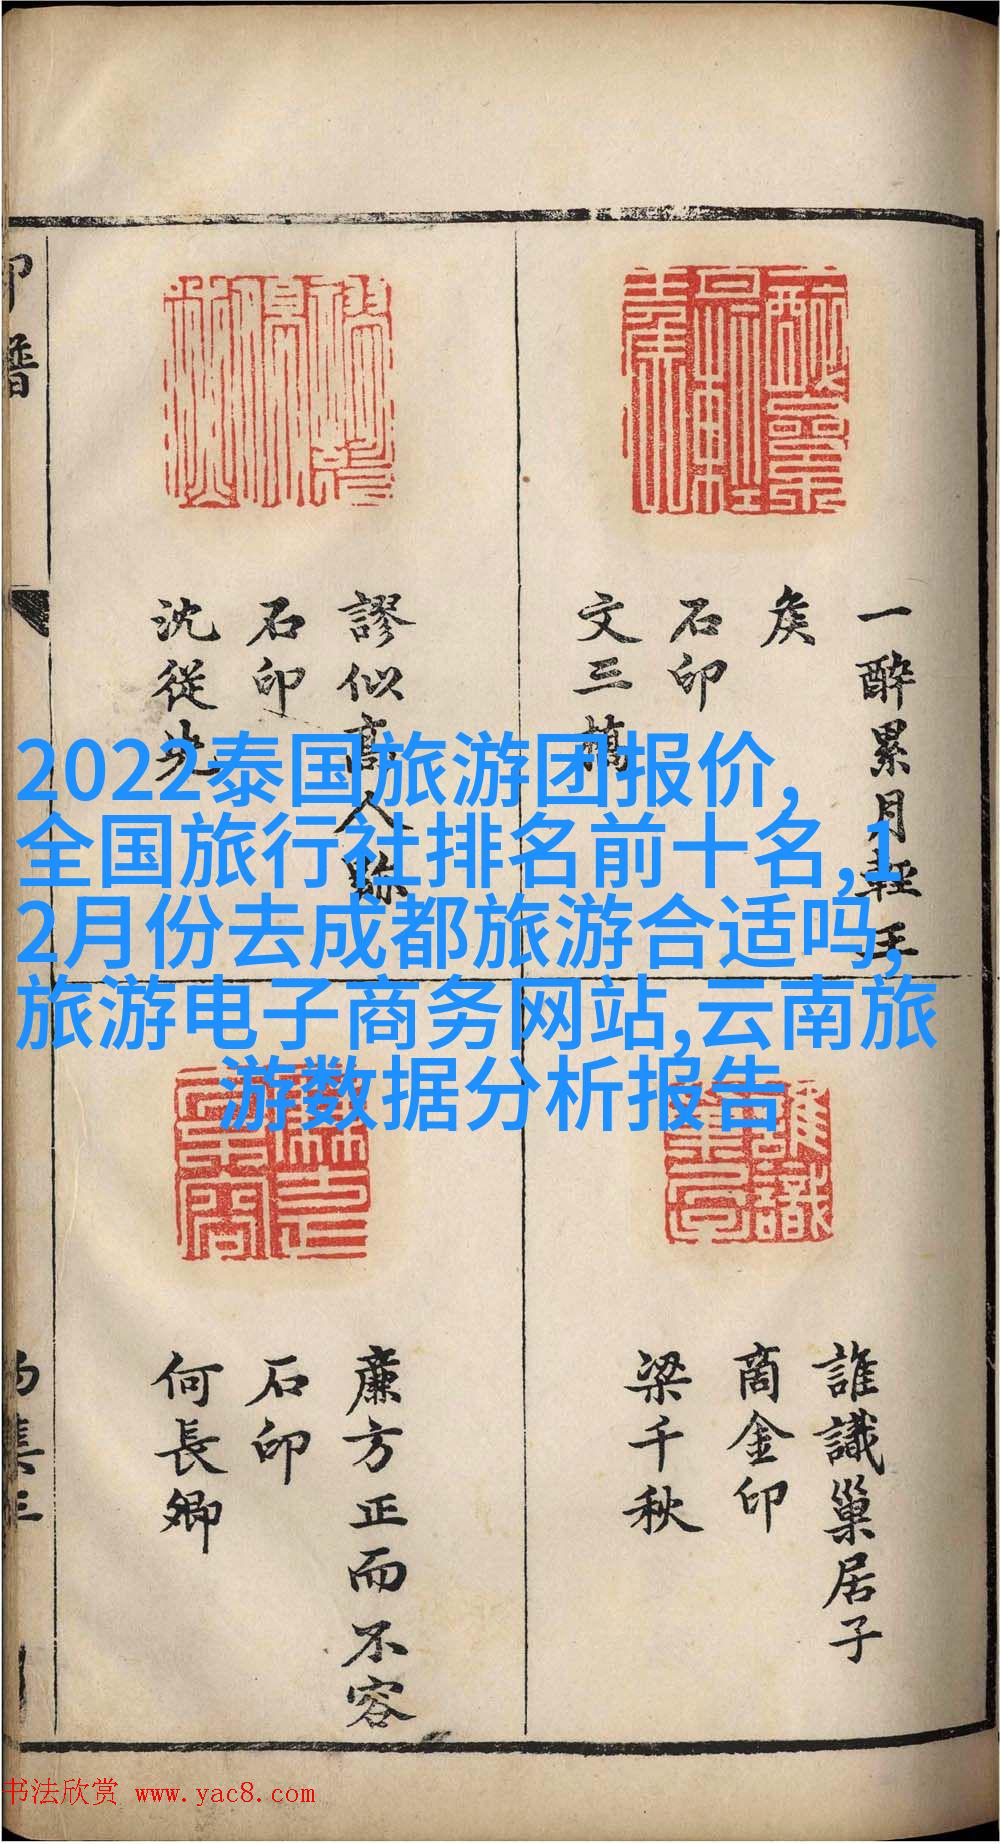 2022泰国旅游团报价,
全国旅行社排名前十名,1
2月份去成都旅游合适吗,
旅游电子商务网站,云南旅
游数据分析报告
一醉累月輕王
矦
石印
文三橋
謬似高人跡
石印
沈從先
誰識巢居子
商金印
梁千秋
廉方正而不容
石印
何長卿
印譜
书法欣赏 www.yac8.com